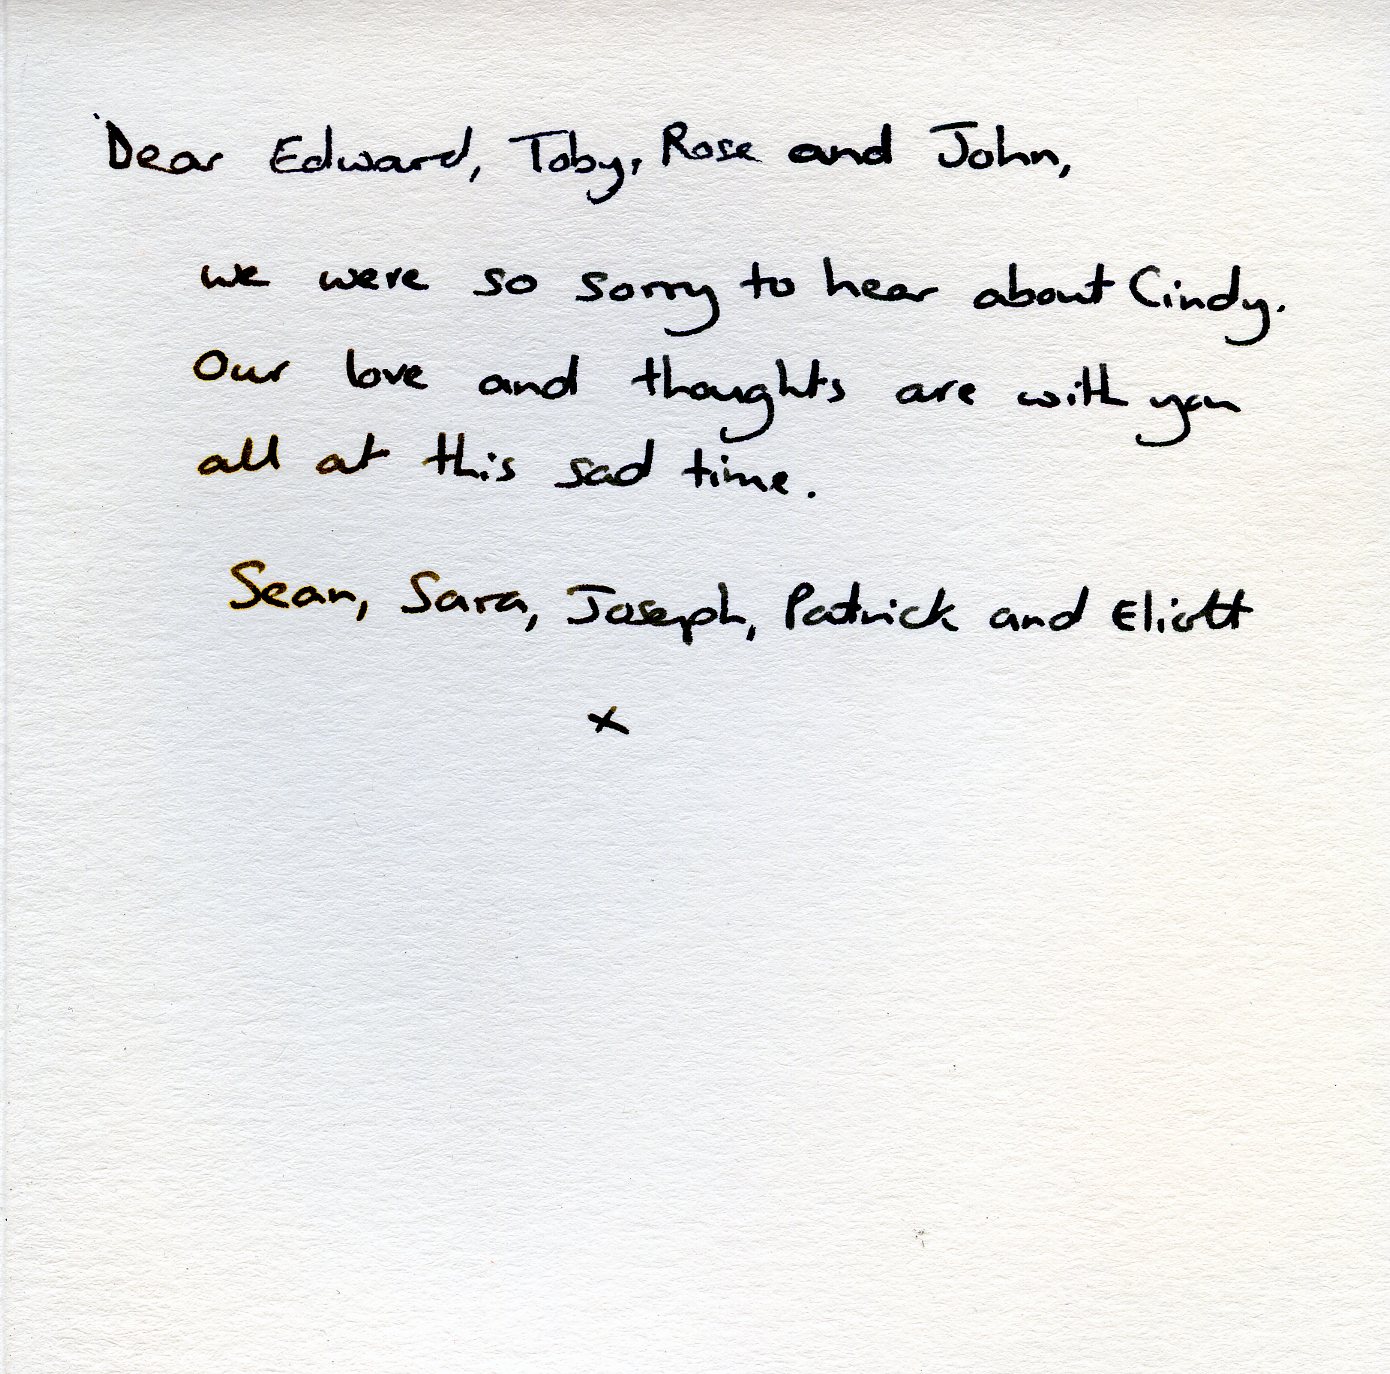 Dear Edward, Toby, Rose and John,
we were so sorry to hear about Cindy.
Our love and thoughts are with you
all at this sad time.
Sean, Sara, Joseph, Patrick and Eliott
x